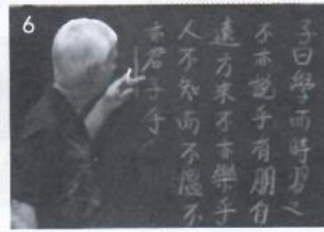 6
子曰學而時習之
不亦說乎有朋自
遠方來不亦樂乎
人不知而不慍不
亦君子乎